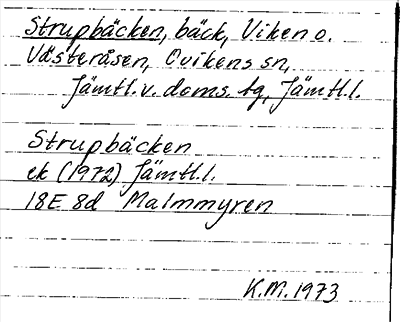 Strupbäcken, bäck, Viken o.
Västeråsen, Ovikens sn,
Jämtl.v. doms. tg, Jämtl.l.
Strupbäcken
ek (1972) Jämtl.l.
18E 8d Malmmyren
K.M. 1973